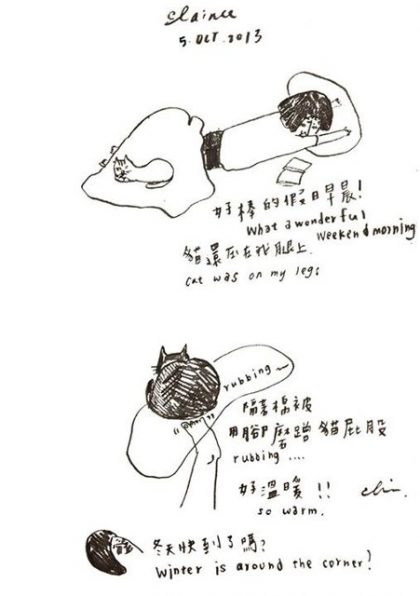 clainee
5.OCT.2013
好棒的假日早晨!
What a wonderful
weekend morning
貓還在在我腿上.
cat was on my legs
rubbing~
隔著棉被
用腳磨蹭貓屁股
rubbing ....
好溫暖!!
so warm.
冬天快到了嗎?
Winter is around the corner?